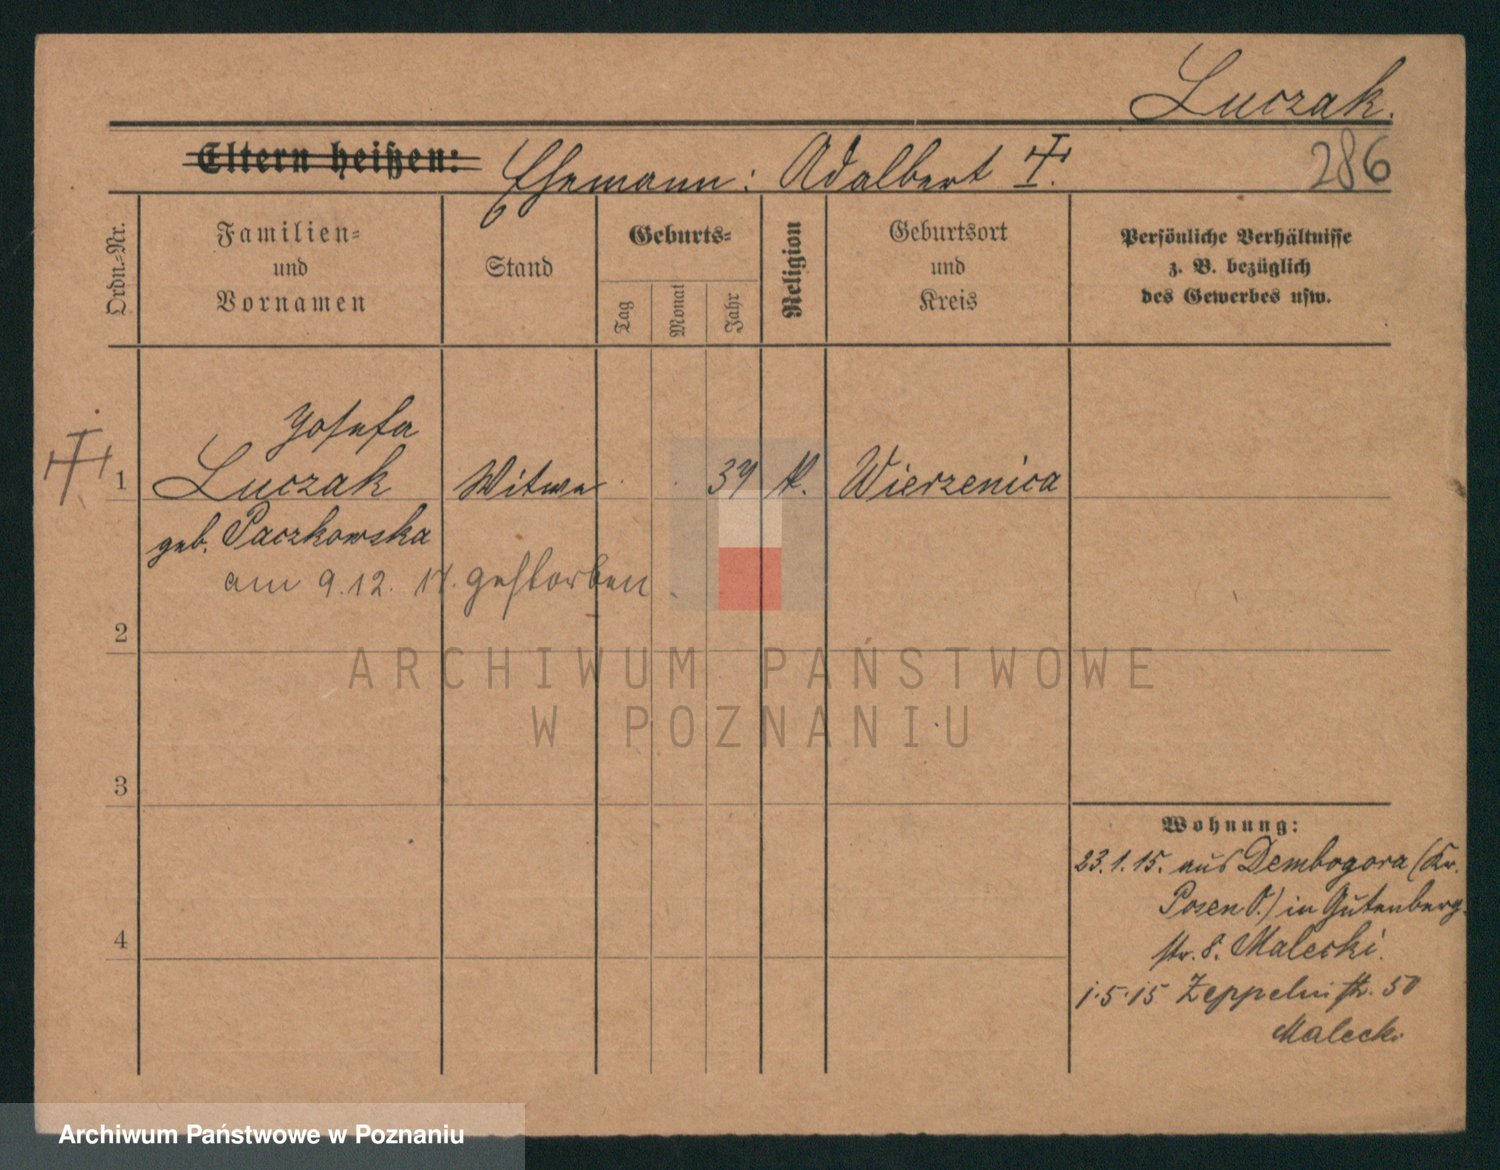 Luczak.
Eltern heißen: Ehemann: Adalbert
286
Ordn.=Nr.
Familien=
und
Vornamen
Stand
Geburts=
Tag
Monat
Jahr
Religion
Geburtsort
und
Kreis
Persönliche Verhältnisse
z. B. bezüglich
des Gewerbes usw.
Josefa
1 Luczak Witwe k. Wierzenica
geb. Paczkowska
am 9.12. gestorben
2
ARCHIWUM PAŃSTWOWE
W POZNANIU
3
Wohnung:
23.1.15. aus Dembogora (Kr.
Posen O.) in Gutenberg
4
str. 8. Malecki.
1.5.15 Zeppelinstr. 50
Malecki
Archiwum Państwowe w Poznaniu